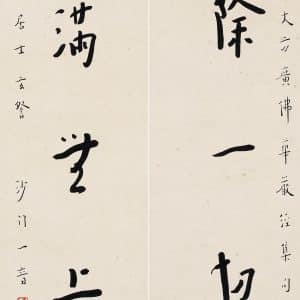 大方廣佛華嚴經集句
除一切
滿無上
居士玄詧 沙門一音